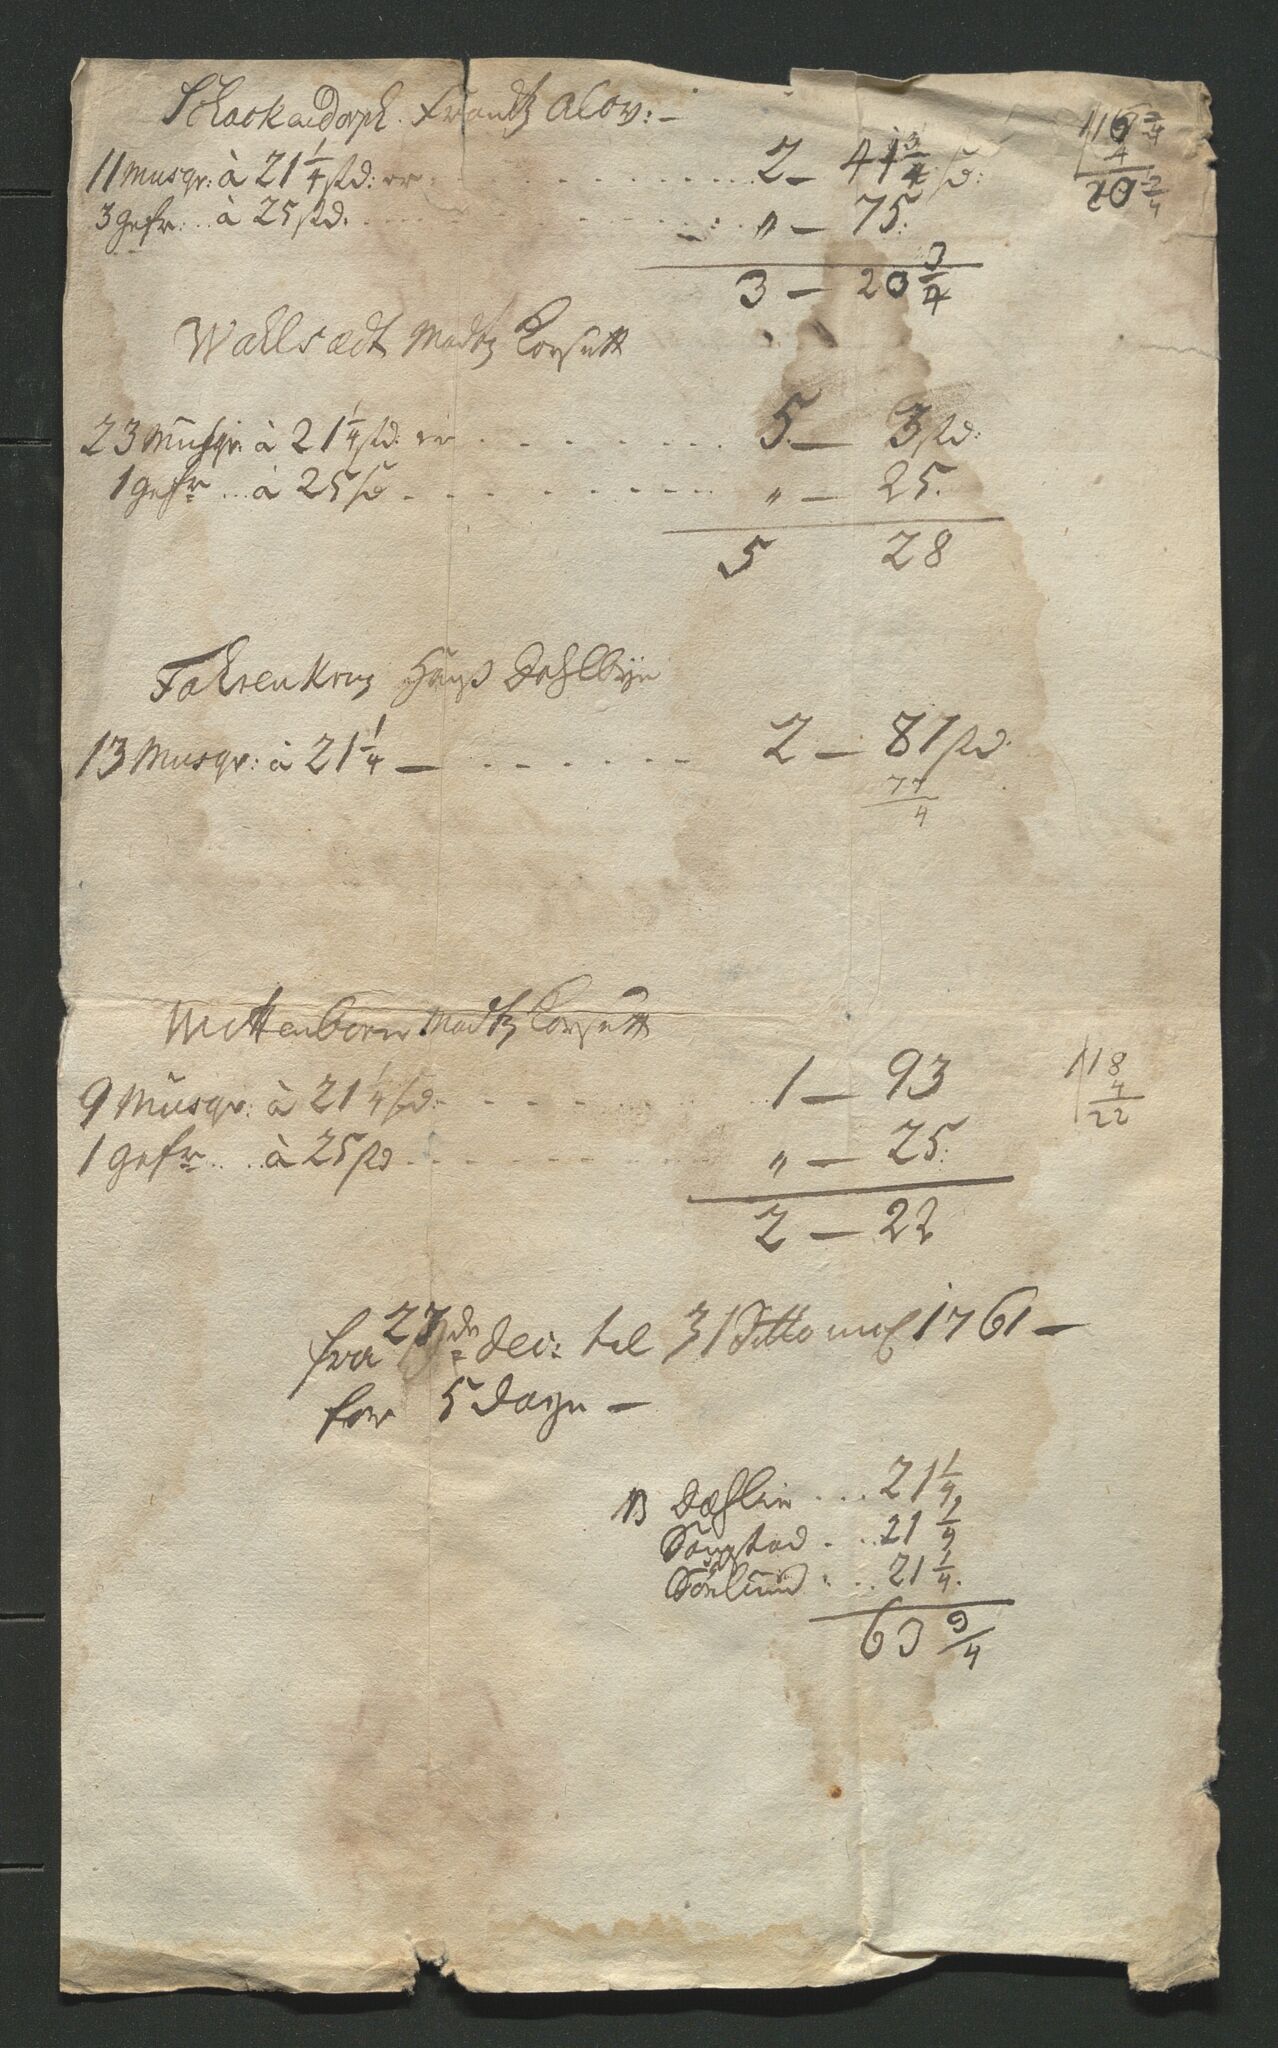 Schackendorph. Frantz Alow:
11 Musqr: à 21 1/4 sk: er . . . 2 — 41 3/4 sk:
3 gefr: . . à 25 sk. . . . „ — 75.
3 — 20 3/4
116 3/4
4
20 3/4
Wahlstædt Madtz Korsett
23 Musqr: à 21 1/4 sk: er . . . 5 — 3 sk:
1 gefr . . . à 25 sk . . . „ — 25.
5 28
Fahrenkrug Hanß Dehlbye
13 Musqr: à 21 1/4 — . . . 2 — 81 sk:
77
4
Mittenborn Madtz Korsett
9 Musqr: à 21 1/4 sk: . . . 1 — 93
1 gefr . . . à 25 sk . . . „ — 25.
2 — 22
118
4
22
fra 27de Dec: til 31 Ditto 1761 —
for 5 Dage —
13 Dæhlin . . . 21 1/4
. . . 21 1/4
Sörlund . . . 21 1/4.
63 3/4